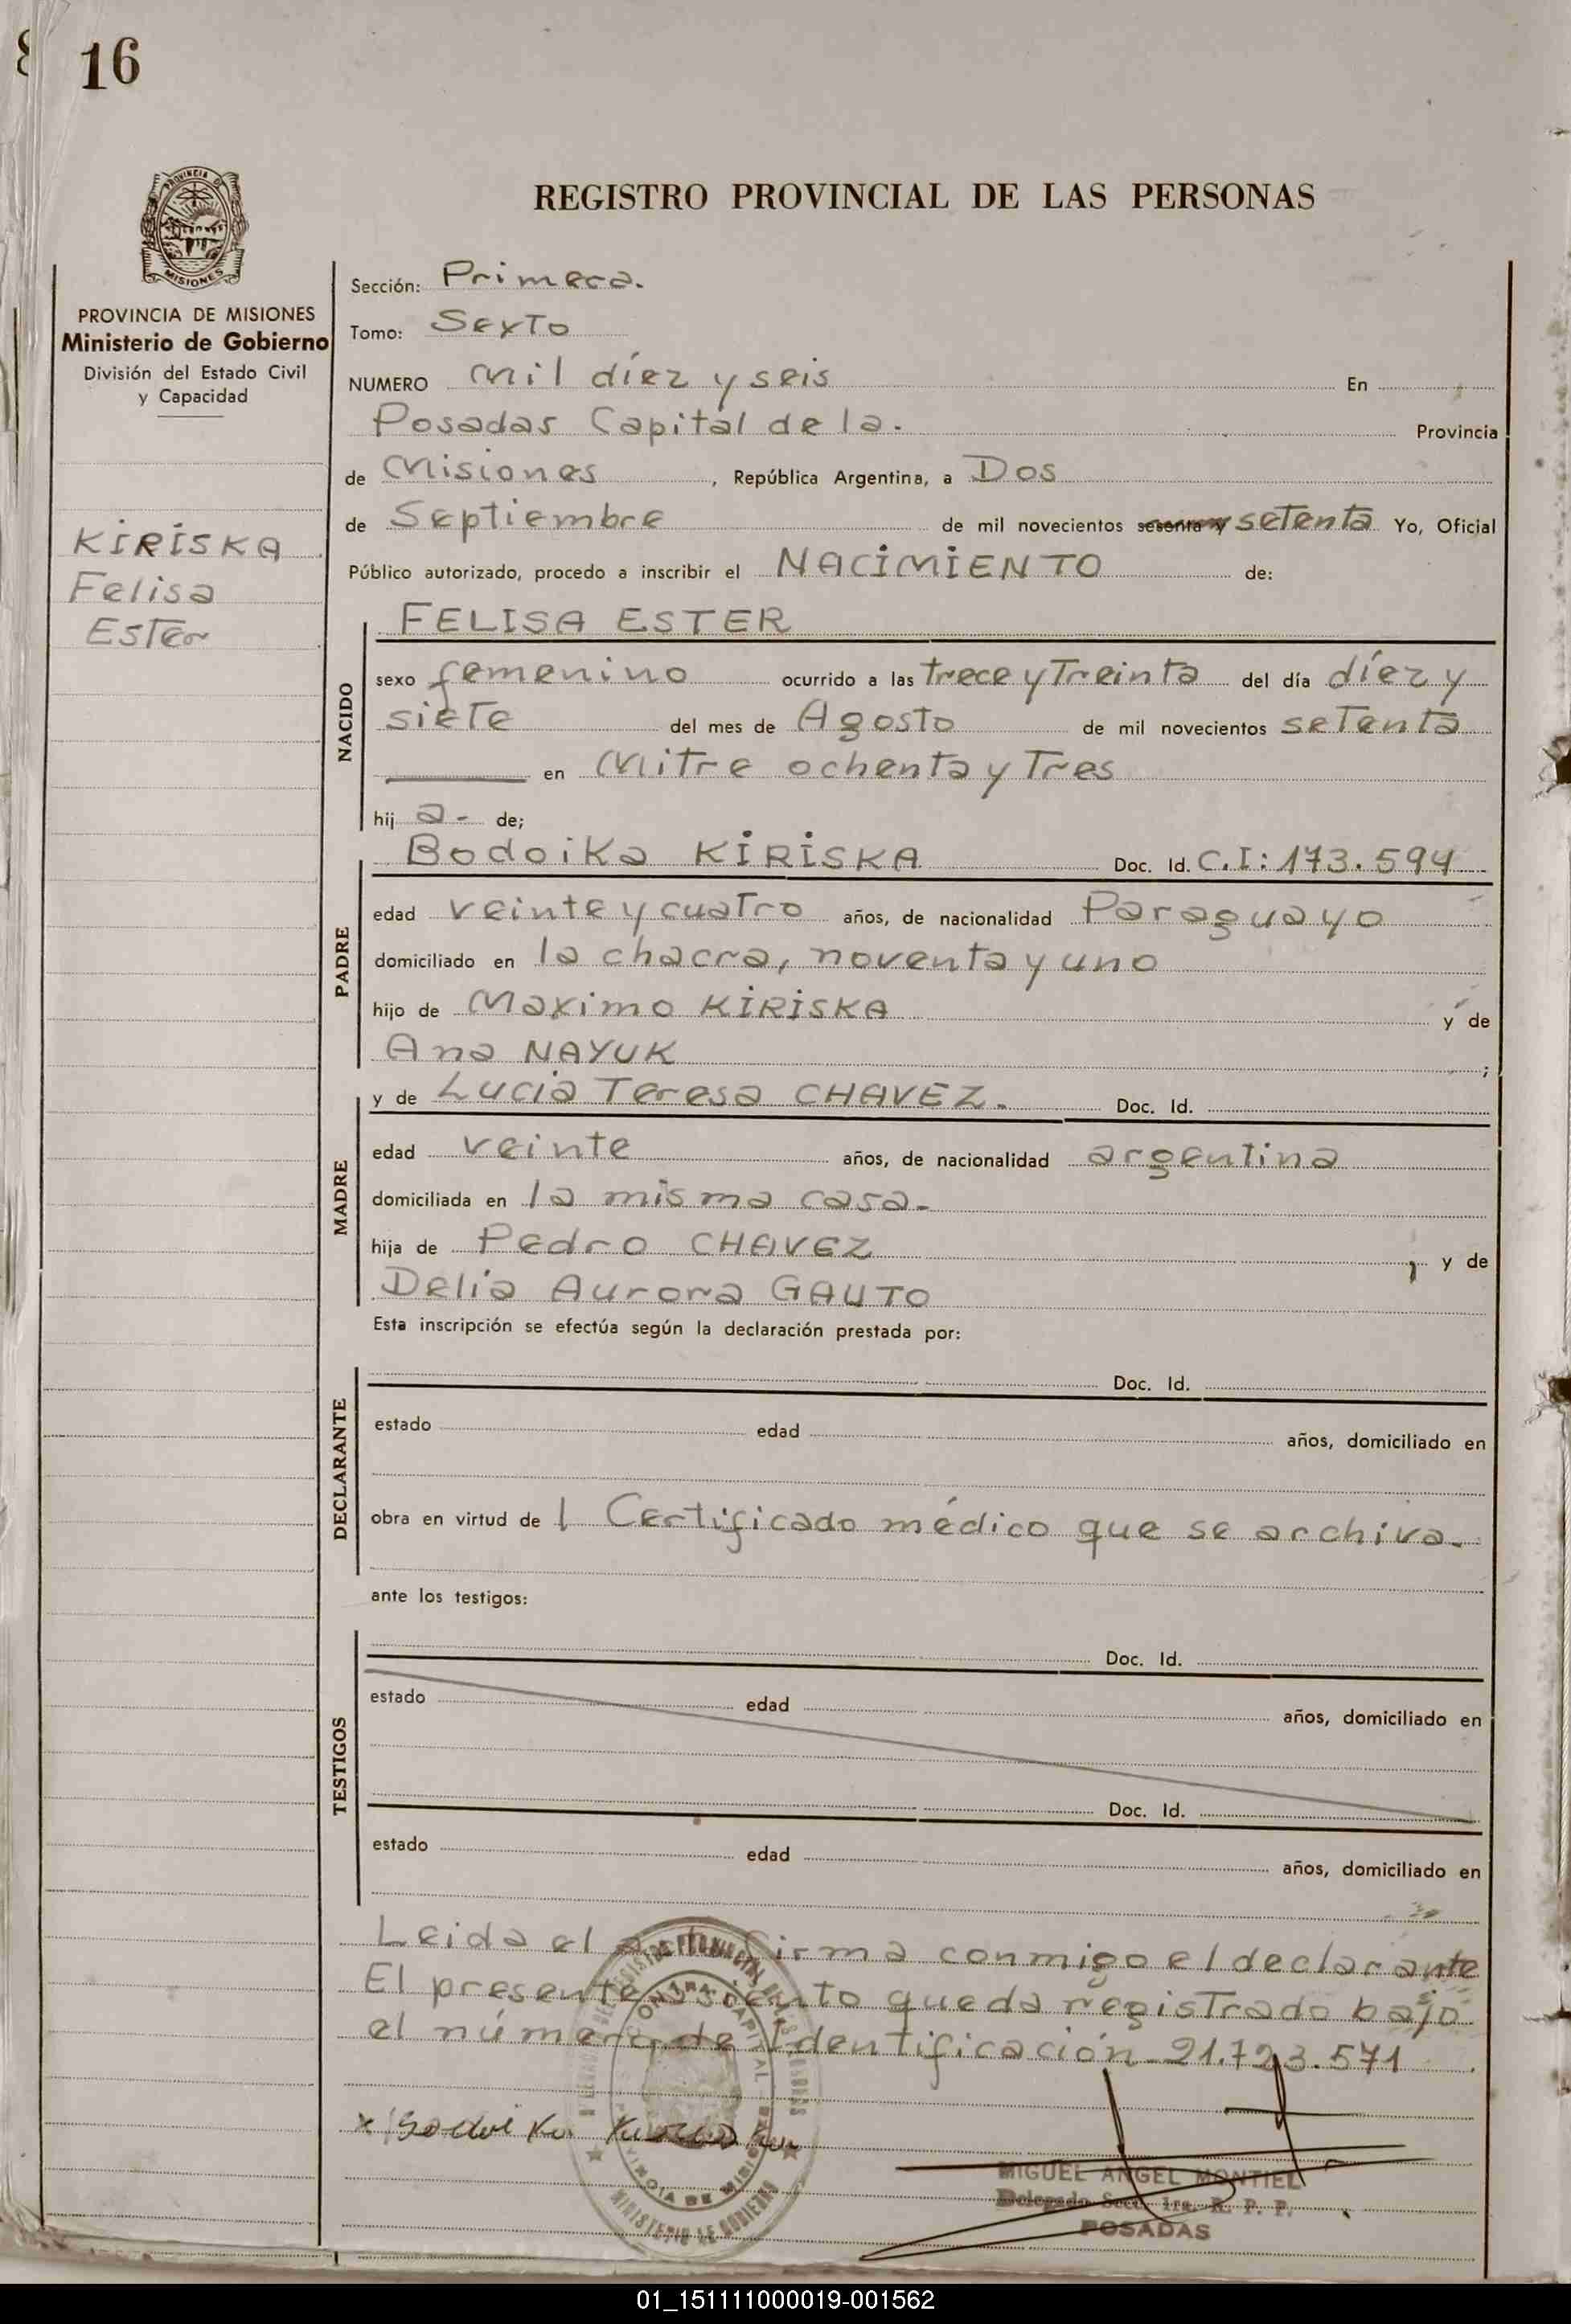 16
REGISTRO PROVINCIAL DE LAS PERSONAS
PROVINCIA DE MISIONES
Ministerio de Gobierno
División del Estado Civil
y Capacidad
KIRISKA
Felisa
Ester
Sección: Primera.
Tomo: Sexto
NUMERO mil díez y seis En
Posadas Capital de la. Provincia
de Misiones, República Argentina, a Dos
de Septiembre de mil novecientos sesenta y setenta Yo, Oficial
Público autorizado, procedo a inscribir el NACIMIENTO de:
FELISA ESTER
NACIDO
sexo femenino ocurrido a las trece y Treinta del día díez y
siete del mes de Agosto de mil novecientos setenta
en Mitre ochenta y Tres
hij a- de;
PADRE
Bodoika KIRISKA Doc. Id. C.I: 173.594
edad veinte y cuatro años, de nacionalidad Paraguayo
domiciliado en la chacra, noventa y uno
hijo de Maximo KIRISKA y de
Ana NAYUK ;
MADRE
y de Lucia Teresa CHAVEZ. Doc. Id.
edad veinte años, de nacionalidad argentina
domiciliada en la misma casa-
hija de Pedro CHAVEZ, y de
Delia Aurora GAUTO
Esta inscripción se efectúa según la declaración prestada por:
DECLARANTE
Doc. Id.
estado edad años, domiciliado en
obra en virtud de l Certificado médico que se archiva-
ante los testigos:
TESTIGOS
Doc. Id.
estado edad años, domiciliado en
Doc. Id.
estado edad años, domiciliado en
Leida el acta firma conmigo el declarante
El presente asiento queda registrado bajo
el número de Identificación 21.723.571
x Bodoika
MIGUEL ANGEL MONTIEL
Delegado Secc. 1ra. R. P. P.
POSADAS
01_151111000019-001562